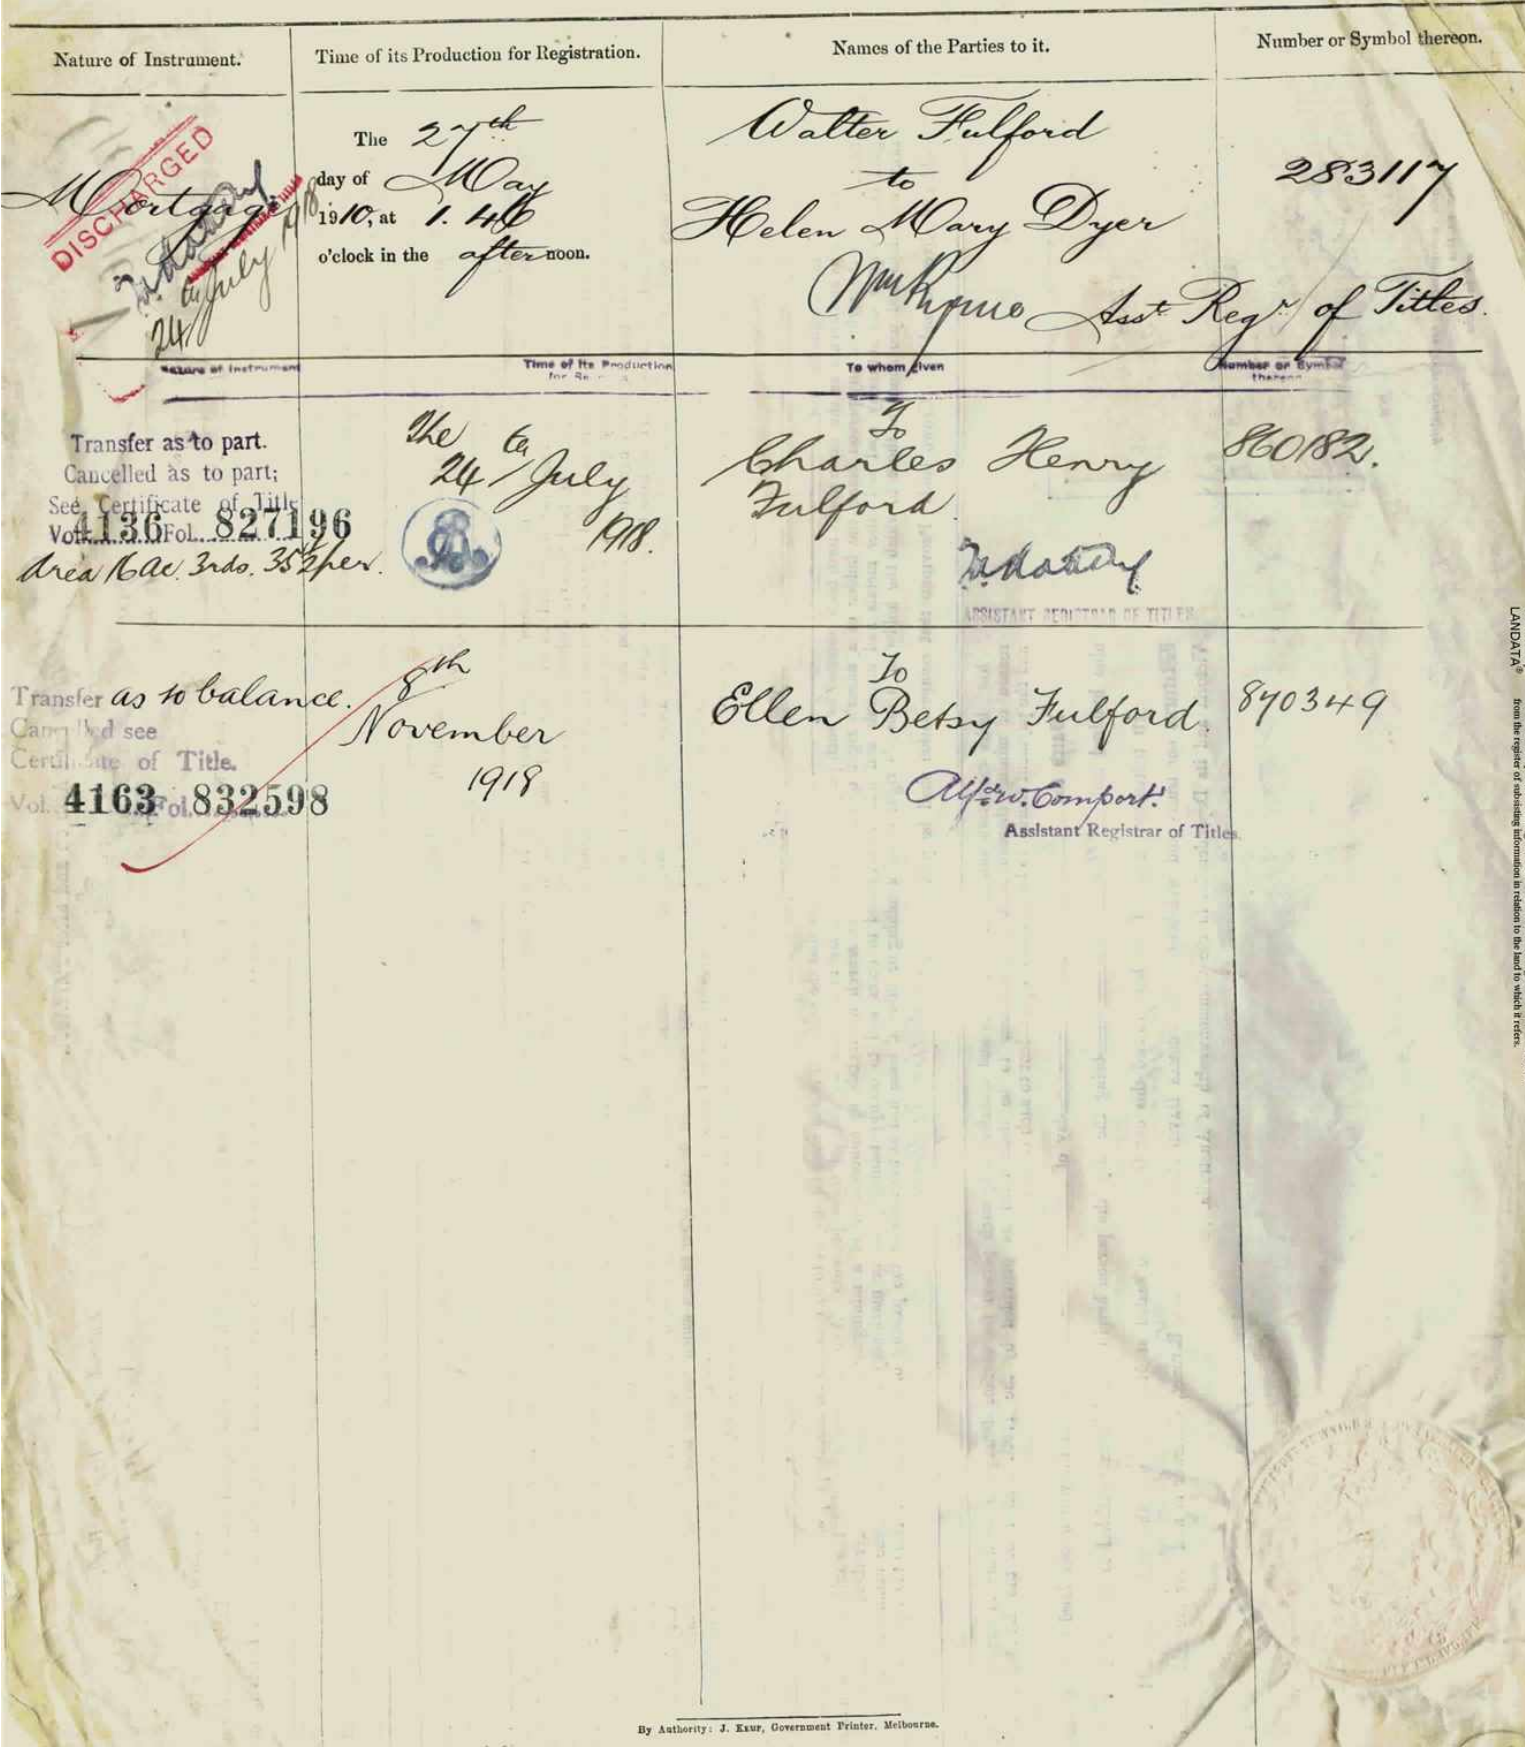 Nature of Instrument.
Time of its Production for Registration.
Names of the Parties to it.
Number or Symbol thereon.
Mortgage
DISCHARGED
24 July 1918
The 27th
day of May
1910, at 1. 46
o'clock in the afternoon.
Walter Fulford
to
Helen Mary Dyer
Asst Regr of Titles.
283117
Nature of Instrument
Time of Its Production
for
To whom given
Number or Symbol
thereon
Transfer as to part.
Cancelled as to part;
See Certificate of Title
Vol. 4136 Fol. 827196
Area 16 ac. 3rds. 35 per.
The
24th July
1918.
To
Charles Henry
Fulford.
ASSISTANT REGISTRAR OF TITLES
860182.
Transfer as to balance.
Cancelled see
Certificate of Title.
Vol. 4163 Fol. 832598
8th
November
1918
To
Ellen Betsy Fulford.
Alf. W. Comport.
Assistant Registrar of Titles.
870349
LANDATA® from the register of subsisting information in relation to the land to which it refers.
By Authority: J. KEMP, Government Printer, Melbourne.